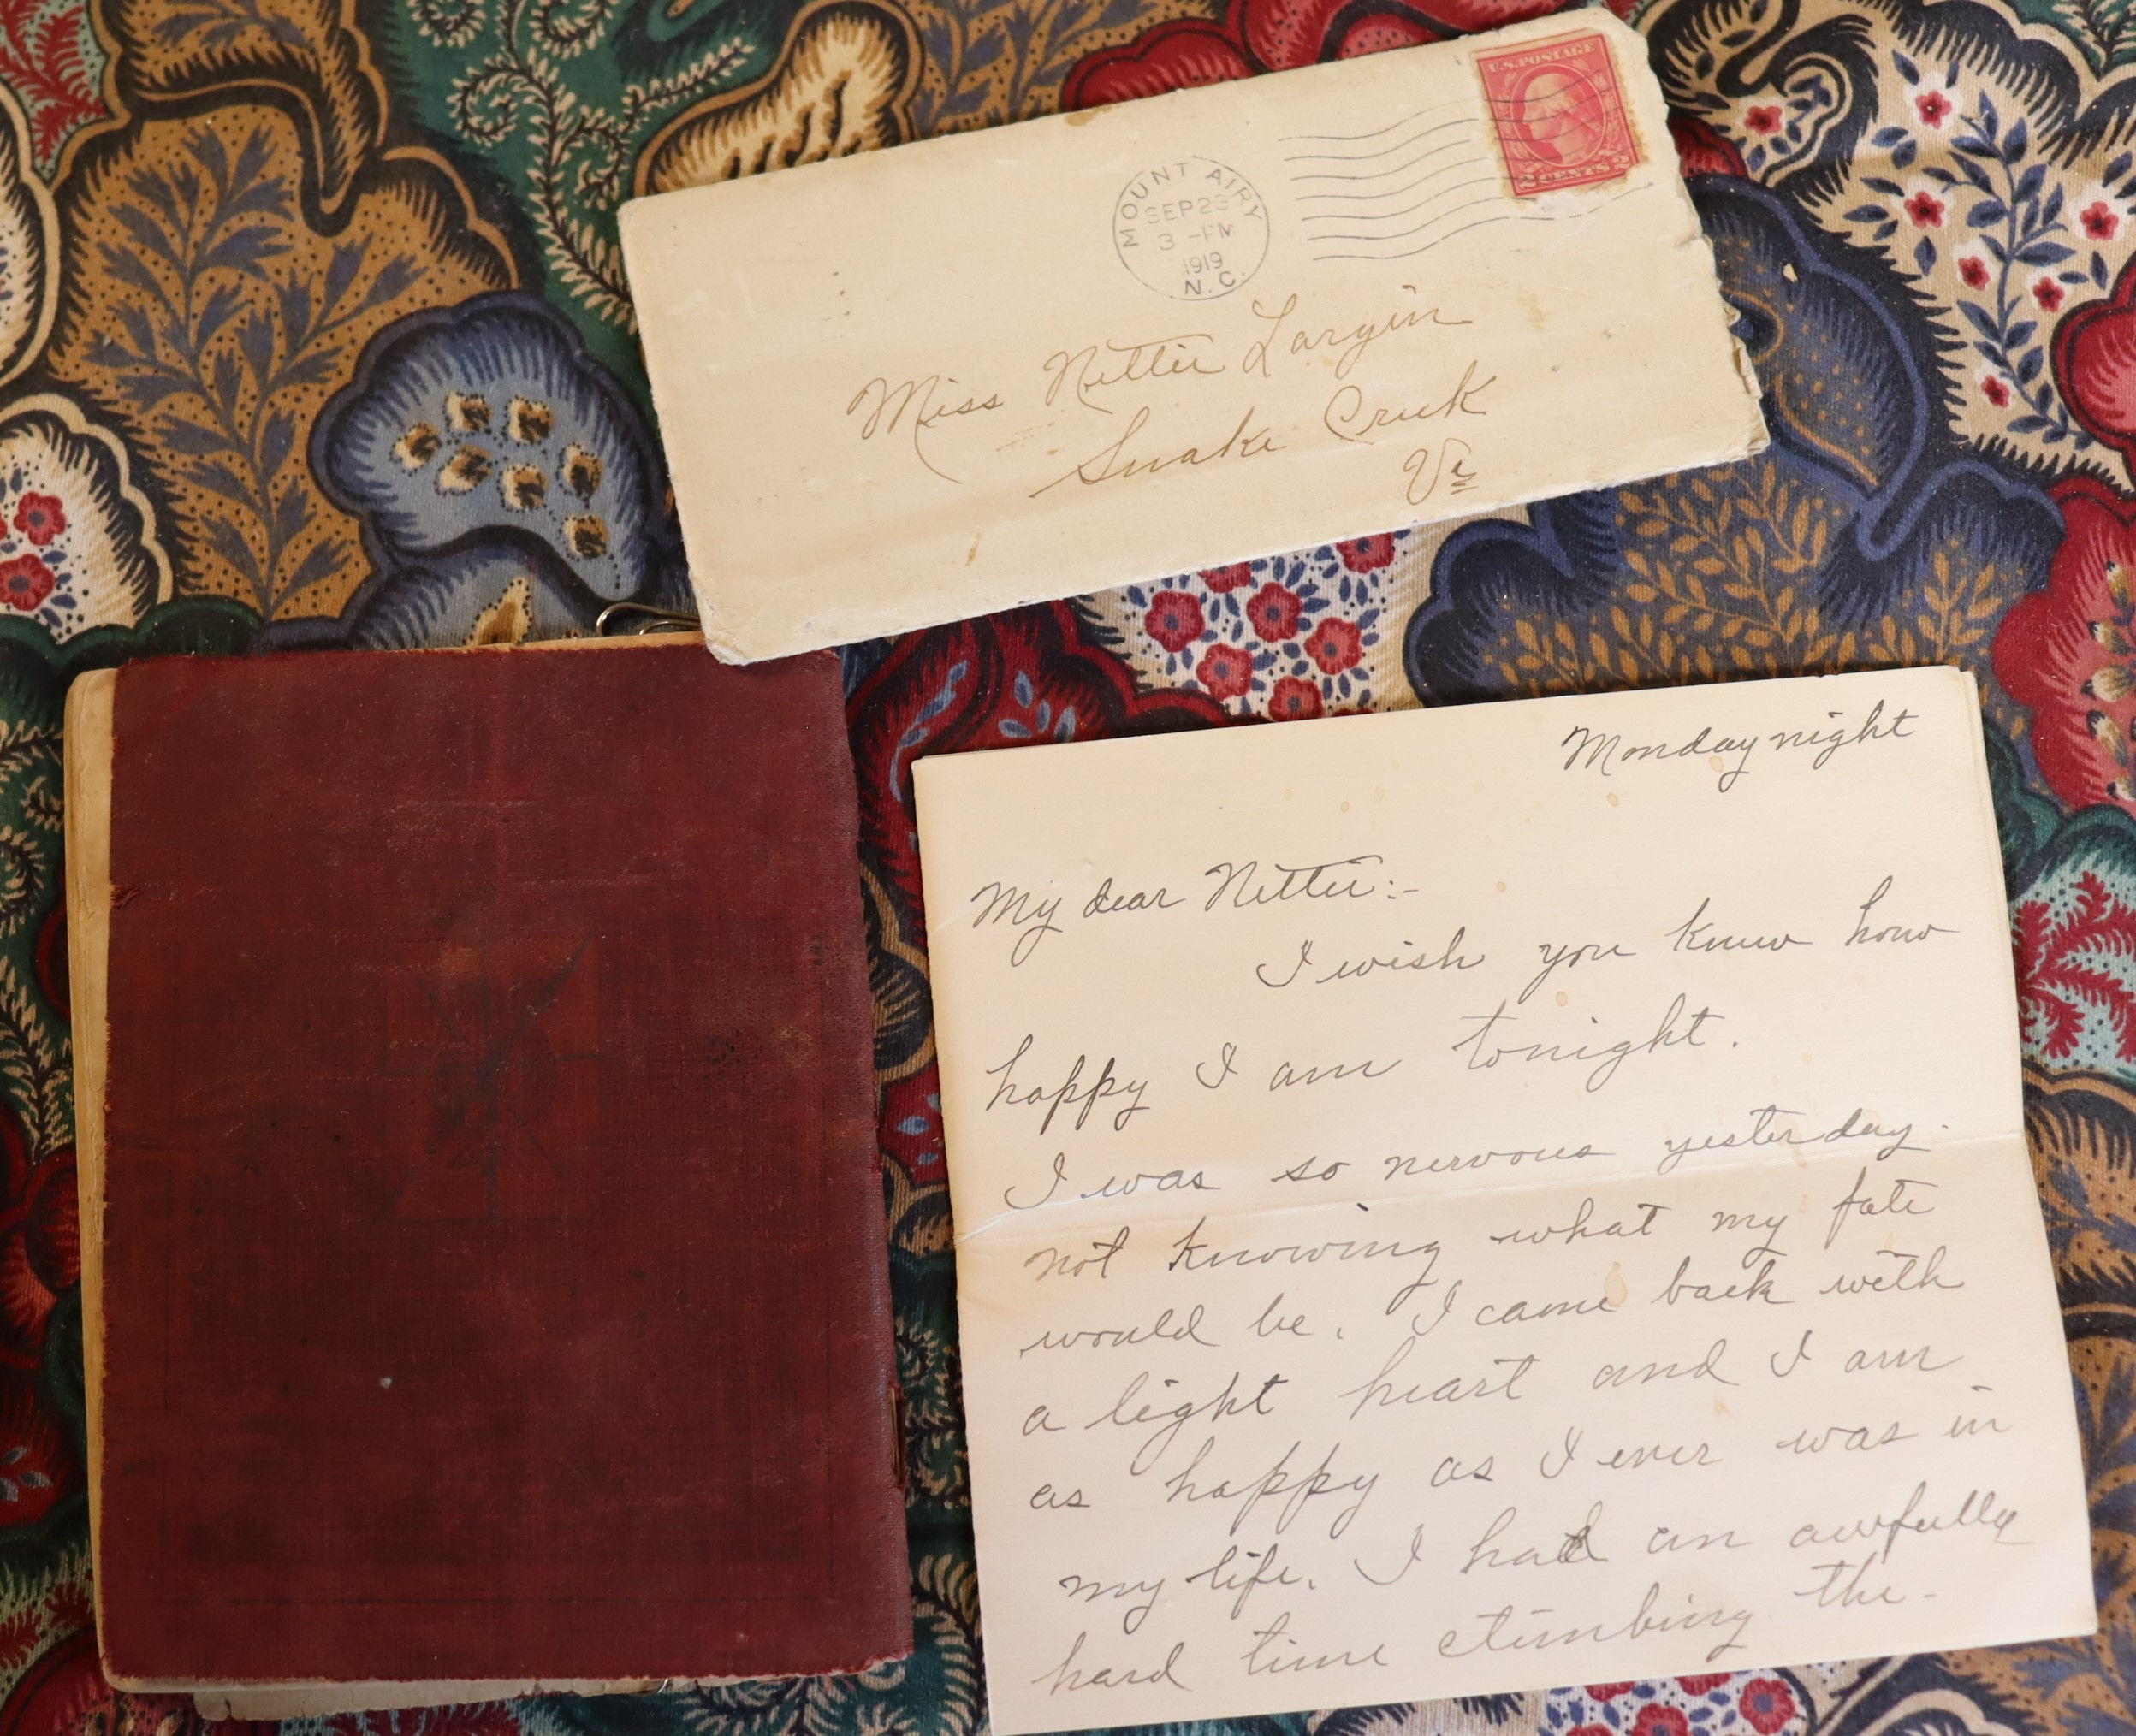 U.S. POSTAGE
2 CENTS 2
MOUNT AIRY
SEP 23
3 -PM
1919
N.C.
Miss Nettie Largin
Snake Creek
Va
Monday night
My dear Nettie:-
I wish you knew how
happy I am tonight.
I was so nervous yesterday.
not knowing what my fate
would be. I came back with
a light heart and I am
as happy as I ever was in
my life. I had an awfully
hard time climbing the-